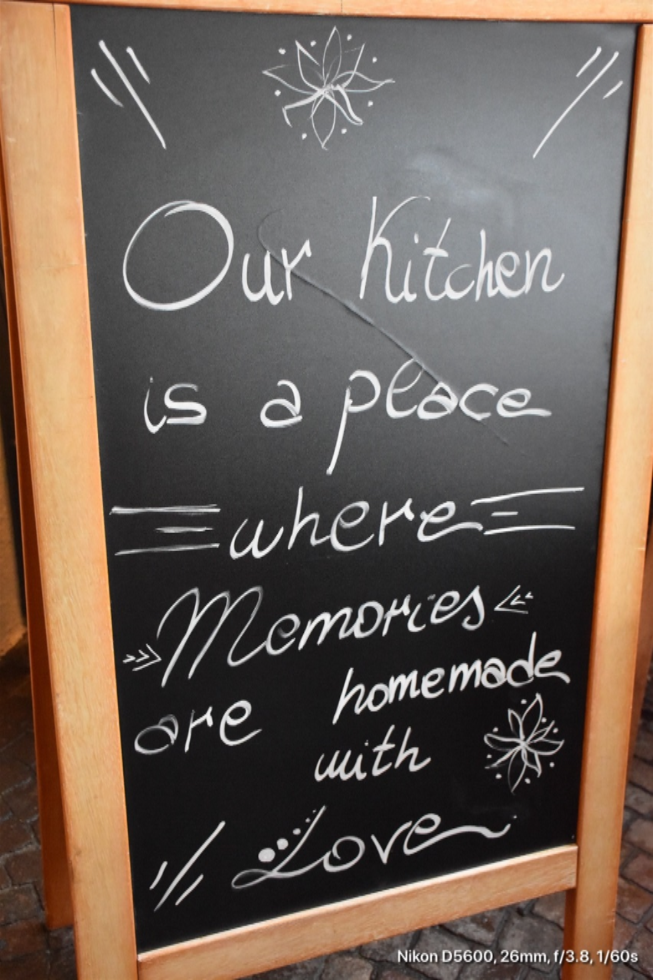 Our Kitchen
is a place
where
Memories
are homemade
with
Love
Nikon D5600, 26mm, f/3.8, 1/60s